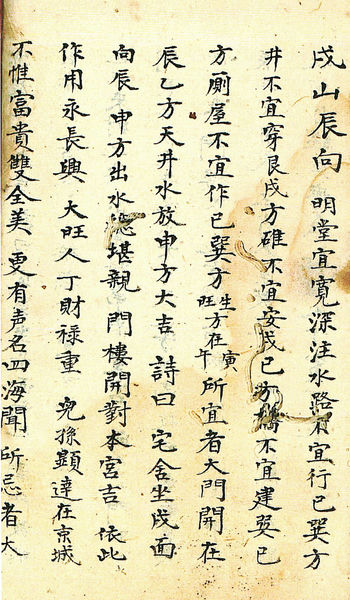 戌山辰向 明堂宜寬深注水路不宜行巳巽方
井不宜穿艮戌方碓不宜安戌巳方橋不宜建巽巳
方厠屋不宜作巳巽方生旺方在寅午所宜者大門開在
辰乙方天井水放申方大吉 詩曰 宅舍坐戌面
向辰 申方出水 堪親 門樓開對本宮吉 依此
作用永長興 大旺人丁財祿重 兒孫顯達在京城
不惟富貴雙全美 更有声名四海聞 所忌者大